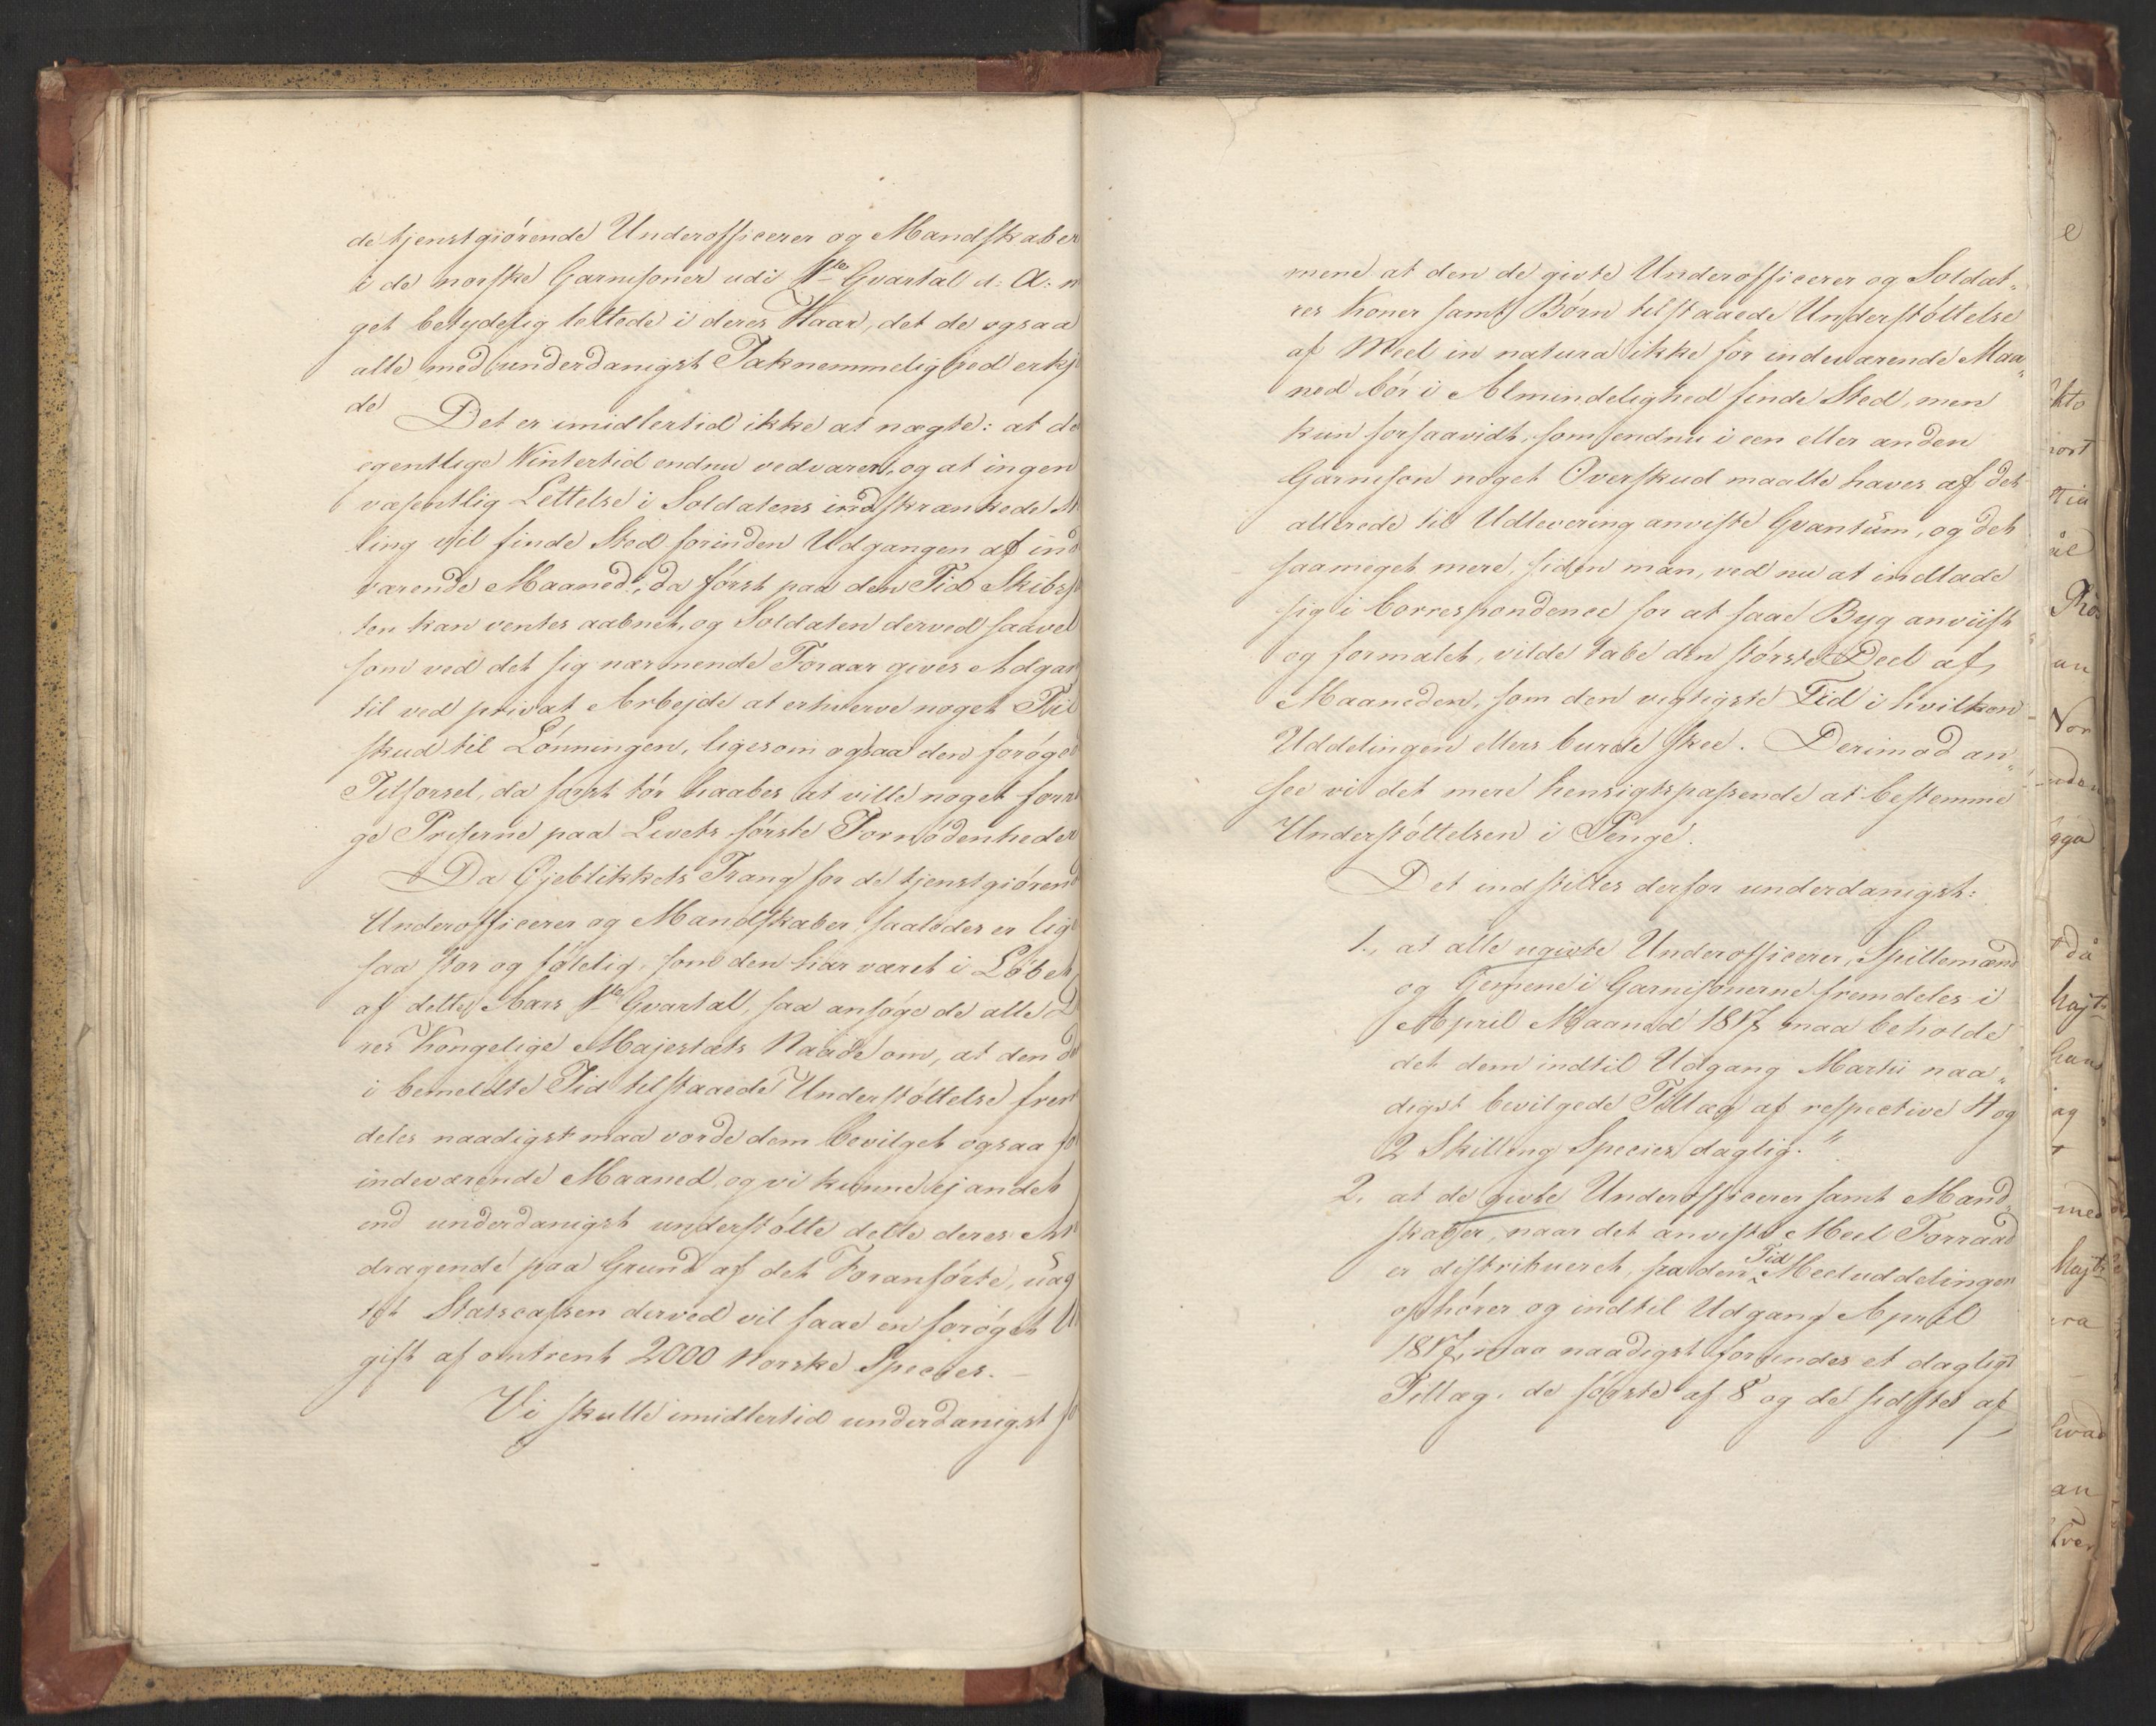 de tjenstgiørende Underofficerer og Mandskaber
i de norske Garnisoner udi 1ste Qvartal d: A: n
get betydelig lettede i deres Kaar, det de ogsaa
alle med underdanigst Taknemmelighed erkj
de
Det er imidlertid ikke at nægte: at de
egentlige Vintertid endnu vedvarer, og at ingen
væsentlig Lettelse i Soldatens indskrænkede
ling vil finde Sted forinden Udgangen af ind
værende Maaned, da først paa den Tid Skibs
ten kan ventes aabnet, og Soldaten derved saavel
som ved det sig nærmende Foraar gives Adgan
til ved privat Arbejde at erhverve noget Til
skud til Lønningen, ligesom ogsaa den forøge
Tilførsel, da først tør haabes at ville noget forri
ge Priserne paa Livets første Fornødenheder
Da Øjeblikkets Trang for de tjenstgiørend
Underofficerer og Mandskaber saaledes er lige
saa stor og følelig, som den har været i Løbet
af dette Aars 1ste Qvartal, saa ansøge de alle D
res Kongelige Majestæts Naade om, at den de
i bemeldte Tid tilstaaede Understøttelse frem
deles naadigst maa vorde dem bevilget ogsaa fo
indeværende Maaned, og vi kunne ej andet
end underdanigst understøtte dette deres An
dragende paa Grund af det Foranførte, uag
tet Statscassen derved vil faae en forøget U
gift af omtrent 2000 Norske Species. –
Vi skulle imidlertid underdanigst fo
mene at den de givte Underofficerer og Soldat„
res Koner samt Børn tilstaaede Understøttelse
af Meel in natura ikke for indeværende Maa„
ned bør i Almindelighed finde Sted, men
kun forsaavidt, som endnu i een eller anden
Garnison noget Overskud maatte haves af det
allerede til Udlevering anviste Qvantum, og det
saameget mere, siden man, ved nu at indlade
sig i Correspondence for at faae Byg anviist
og formalet, vilde tabe den største Deel af
Maaneden, som den vigtigste Tid i hvilken
Uddelingen ellers burde skee. Derimod an„
see vi det mere hensigtspassende at bestemme
Understøttelsen i Penge.
Det indstilles derfor underdanigst:
1., at alle ugivte Underofficerer, Spillemænd
og Gemene i Garnisonerne fremdeles i
April Maaned 1817 maa beholde
det dem indtil Udgang Martii naa„
digst bevilgede Tillæg af respective 4 og
2 Skilling Species daglig.
2. at de givte Underofficerer samt Mand„
skaber, naar det anviste Meel Forraad
er distribueret, fra den Tid Meeluddelingen
ophører og indtil Udgang April
1817, maa naadigst forundes et dagligt
Tillæg, de første af 8 og de sidste af